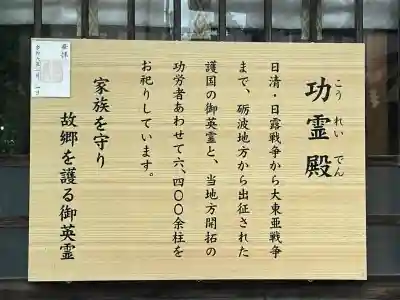 功霊殿
こうれいでん
日清・日露戦争から大東亜戦争
まで、砺波地方から出征された
護国の御英霊と、当地方開拓の
功労者あわせて六、四〇〇余柱を
お祀りしています。
家族を守り
故郷を護る御英霊
奉拝